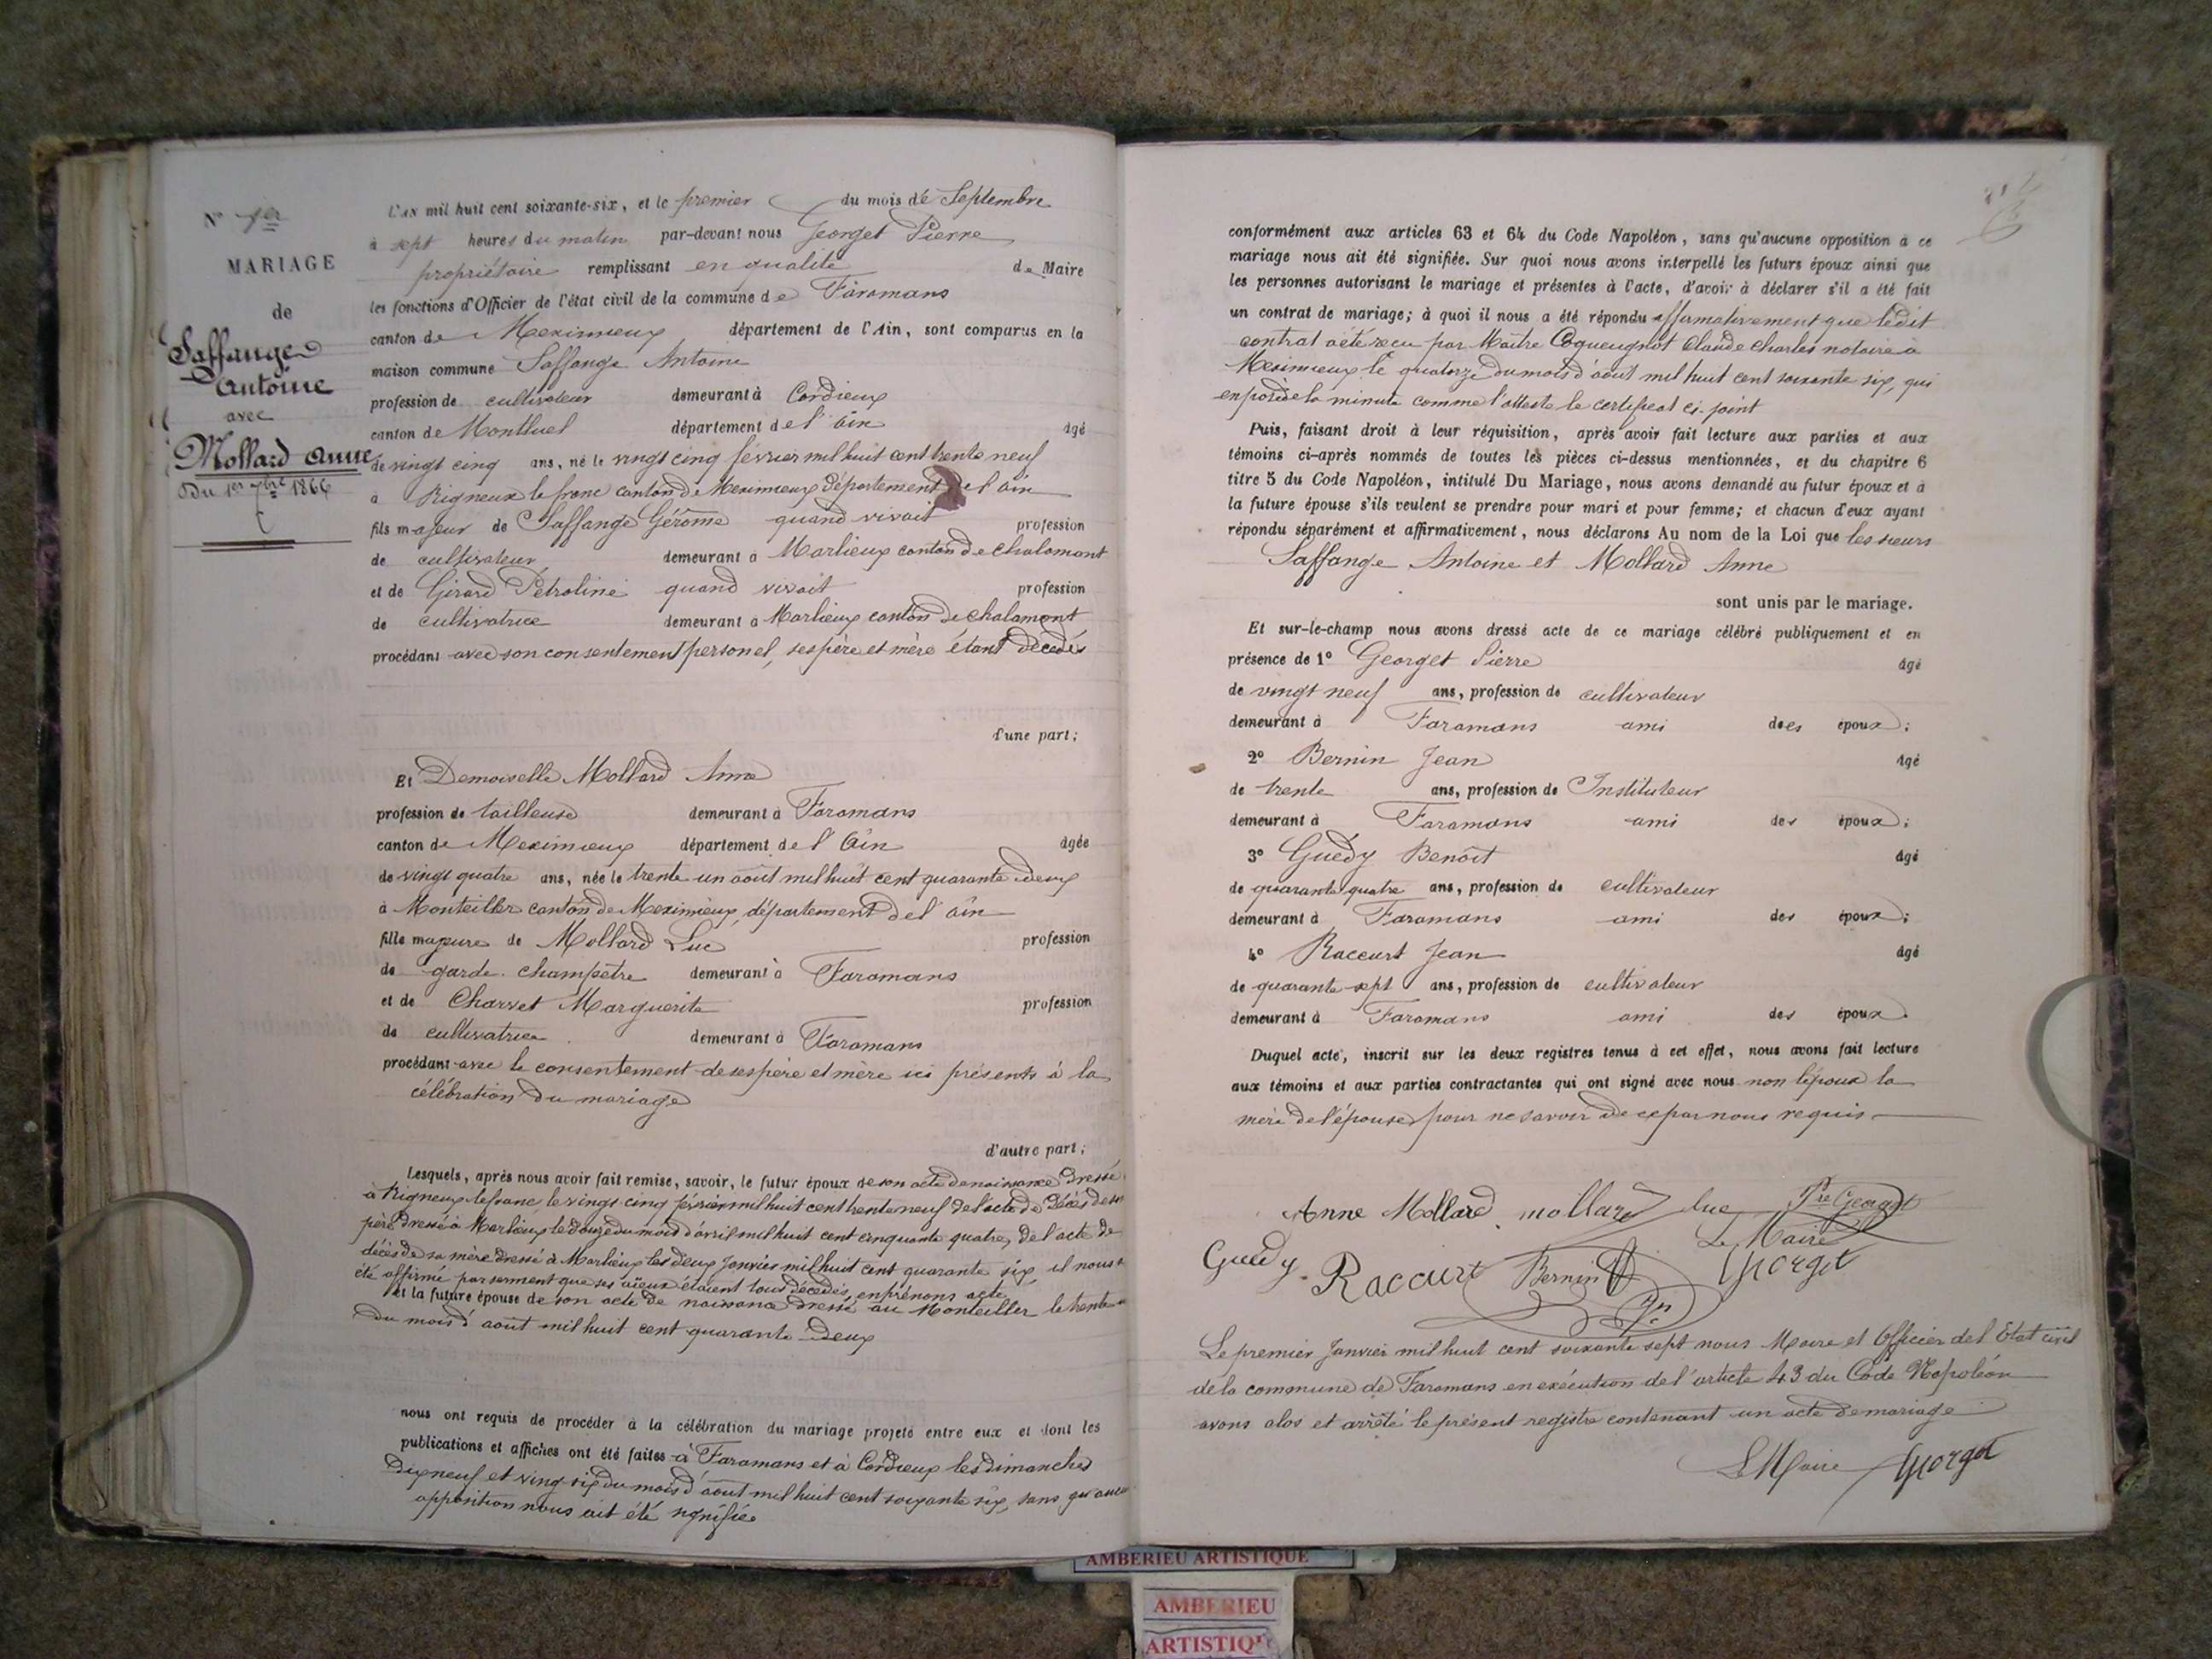 N° 1er
MARIAGE
de
Saffange
Antoine
avec
Mollard Anne
Du 1er 7bre 1866
L'an mil huit cent soixante-six, et le premier du mois de Septembre
à sept heures du matin par-devant nous Georget Pierre
propriétaire remplissant en qualité de Maire
les fonctions d'Officier de l'état civil de la commune de Faramans
canton de Meximieux département de l'Ain, sont comparus en la
maison commune Saffange Antoine
profession de cultivateur demeurant à Cordieux
canton de Montluel département de l'ain âgé
de vingt cinq ans, né le vingt cinq février mil huit cent trente neuf
à Rigneux le franc canton de Meximieux département de l'ain
fils majeur de Saffange Gérôme quand vivait profession
de cultivateur demeurant à Marlieux canton de chalamont
et de Girard Pétroline quand vivait profession
de cultivatrice demeurant à Marlieux canton de chalamont
procédant avec son consentement personel, ses père et mère étant décédés
d'une part;
Et Demoiselle Mollard Anne
profession de tailleuse demeurant à Faramans
canton de Meximieux département de l'ain âgée
de vingt quatre ans, née le trente un août mil huit cent quarante deux
à Monteiller canton de Meximieux, département de l'ain
fille majeure de Mollard Luc profession
de garde-champêtre demeurant à Faramans
et de Charvet Marguerite profession
de cultivatrice demeurant à Faramans
procédant avec le consentement de ses père et mère ici présents à la
célébration du mariage
d'autre part;
Lesquels, après nous avoir fait remise, savoir, le futur époux de son acte de naissance dressé
à Rigneux le franc, le vingt cinq février mil huit cent trente neuf de l'acte de décès de son
père dressé à Marlieux le douze du mois d'avril mil huit cent cinquante quatre, de l'acte de
décès de sa mère dressé à Marlieux les deux Janvier mil huit cent quarante six, il nous a
été affirmé par serment que ses aïeux étaient tous décédés, en prénons acte
et la future épouse de son acte de naissance dressé au Monteiller le trente un
du mois d'août mil huit cent quarante deux
nous ont requis de procéder à la célébration du mariage projeté entre eux et dont les
publications et affiches ont été faites à Faramans et à Cordieux les dimanches
dix neuf et vingt six du mois d'août mil huit cent soixante six, sans qu'aucune
opposition nous ait été signifiée
conformément aux articles 63 et 64 du Code Napoléon, sans qu'aucune opposition à ce
mariage nous ait été signifiée. Sur quoi nous avons interpellé les futurs époux ainsi que
les personnes autorisant le mariage et présentes à l'acte, d'avoir à déclarer s'il a été fait
un contrat de mariage; à quoi il nous a été répondu affirmativement que ledit
contrat a été reçu par Maître Coqueugnot Claude Charles notaire à
Meximieux le quatorze du mois d'août mil huit cent soixante six, qui
en posède la minute comme l'atteste le certificat ci-joint
Puis, faisant droit à leur réquisition, après avoir fait lecture aux parties et aux
témoins ci-après nommés de toutes les pièces ci-dessus mentionnées, et du chapitre 6
titre 5 du Code Napoléon, intitulé Du Mariage, nous avons demandé au futur époux et à
la future épouse s'ils veulent se prendre pour mari et pour femme; et chacun d'eux ayant
répondu séparément et affirmativement, nous déclarons Au nom de la Loi que les sieurs
Saffange Antoine et Mollard Anne
sont unis par le mariage.
Et sur-le-champ nous avons dressé acte de ce mariage célébré publiquement et en
présence de 1° Georget Pierre âgé
de vingt neuf ans, profession de cultivateur
demeurant à Faramans ami des époux;
2° Bernin Jean âgé
de trente ans, profession de Instituteur
demeurant à Faramans ami des époux;
3° Guedy Benoît âgé
de quarante quatre ans, profession de cultivateur
demeurant à Faramans ami des époux;
4° Raccurt Jean âgé
de quarante sept ans, profession de cultivateur
demeurant à Faramans ami des époux.
Duquel acte, inscrit sur les deux registres tenus à cet effet, nous avons fait lecture
aux témoins et aux parties contractantes qui ont signé avec nous non l'époux la
mère de l'épouse pour ne savoir de ce par nous requis
Anne Mollard mollard luc Pre Georget
Le Maire
Guedy Raccurt Bernin Georget
Le premier Janvier mil huit cent soixante sept nous Maire et Officier de l'Etat civil
de la commune de Faramans en exécution de l'article 43 du Code Napoléon
avons clos et arrêté le présent registre contenant un acte de mariage
Le Maire Georget
AMBERIEU ARTISTIQUE
AMBERIEU
ARTISTIQUE